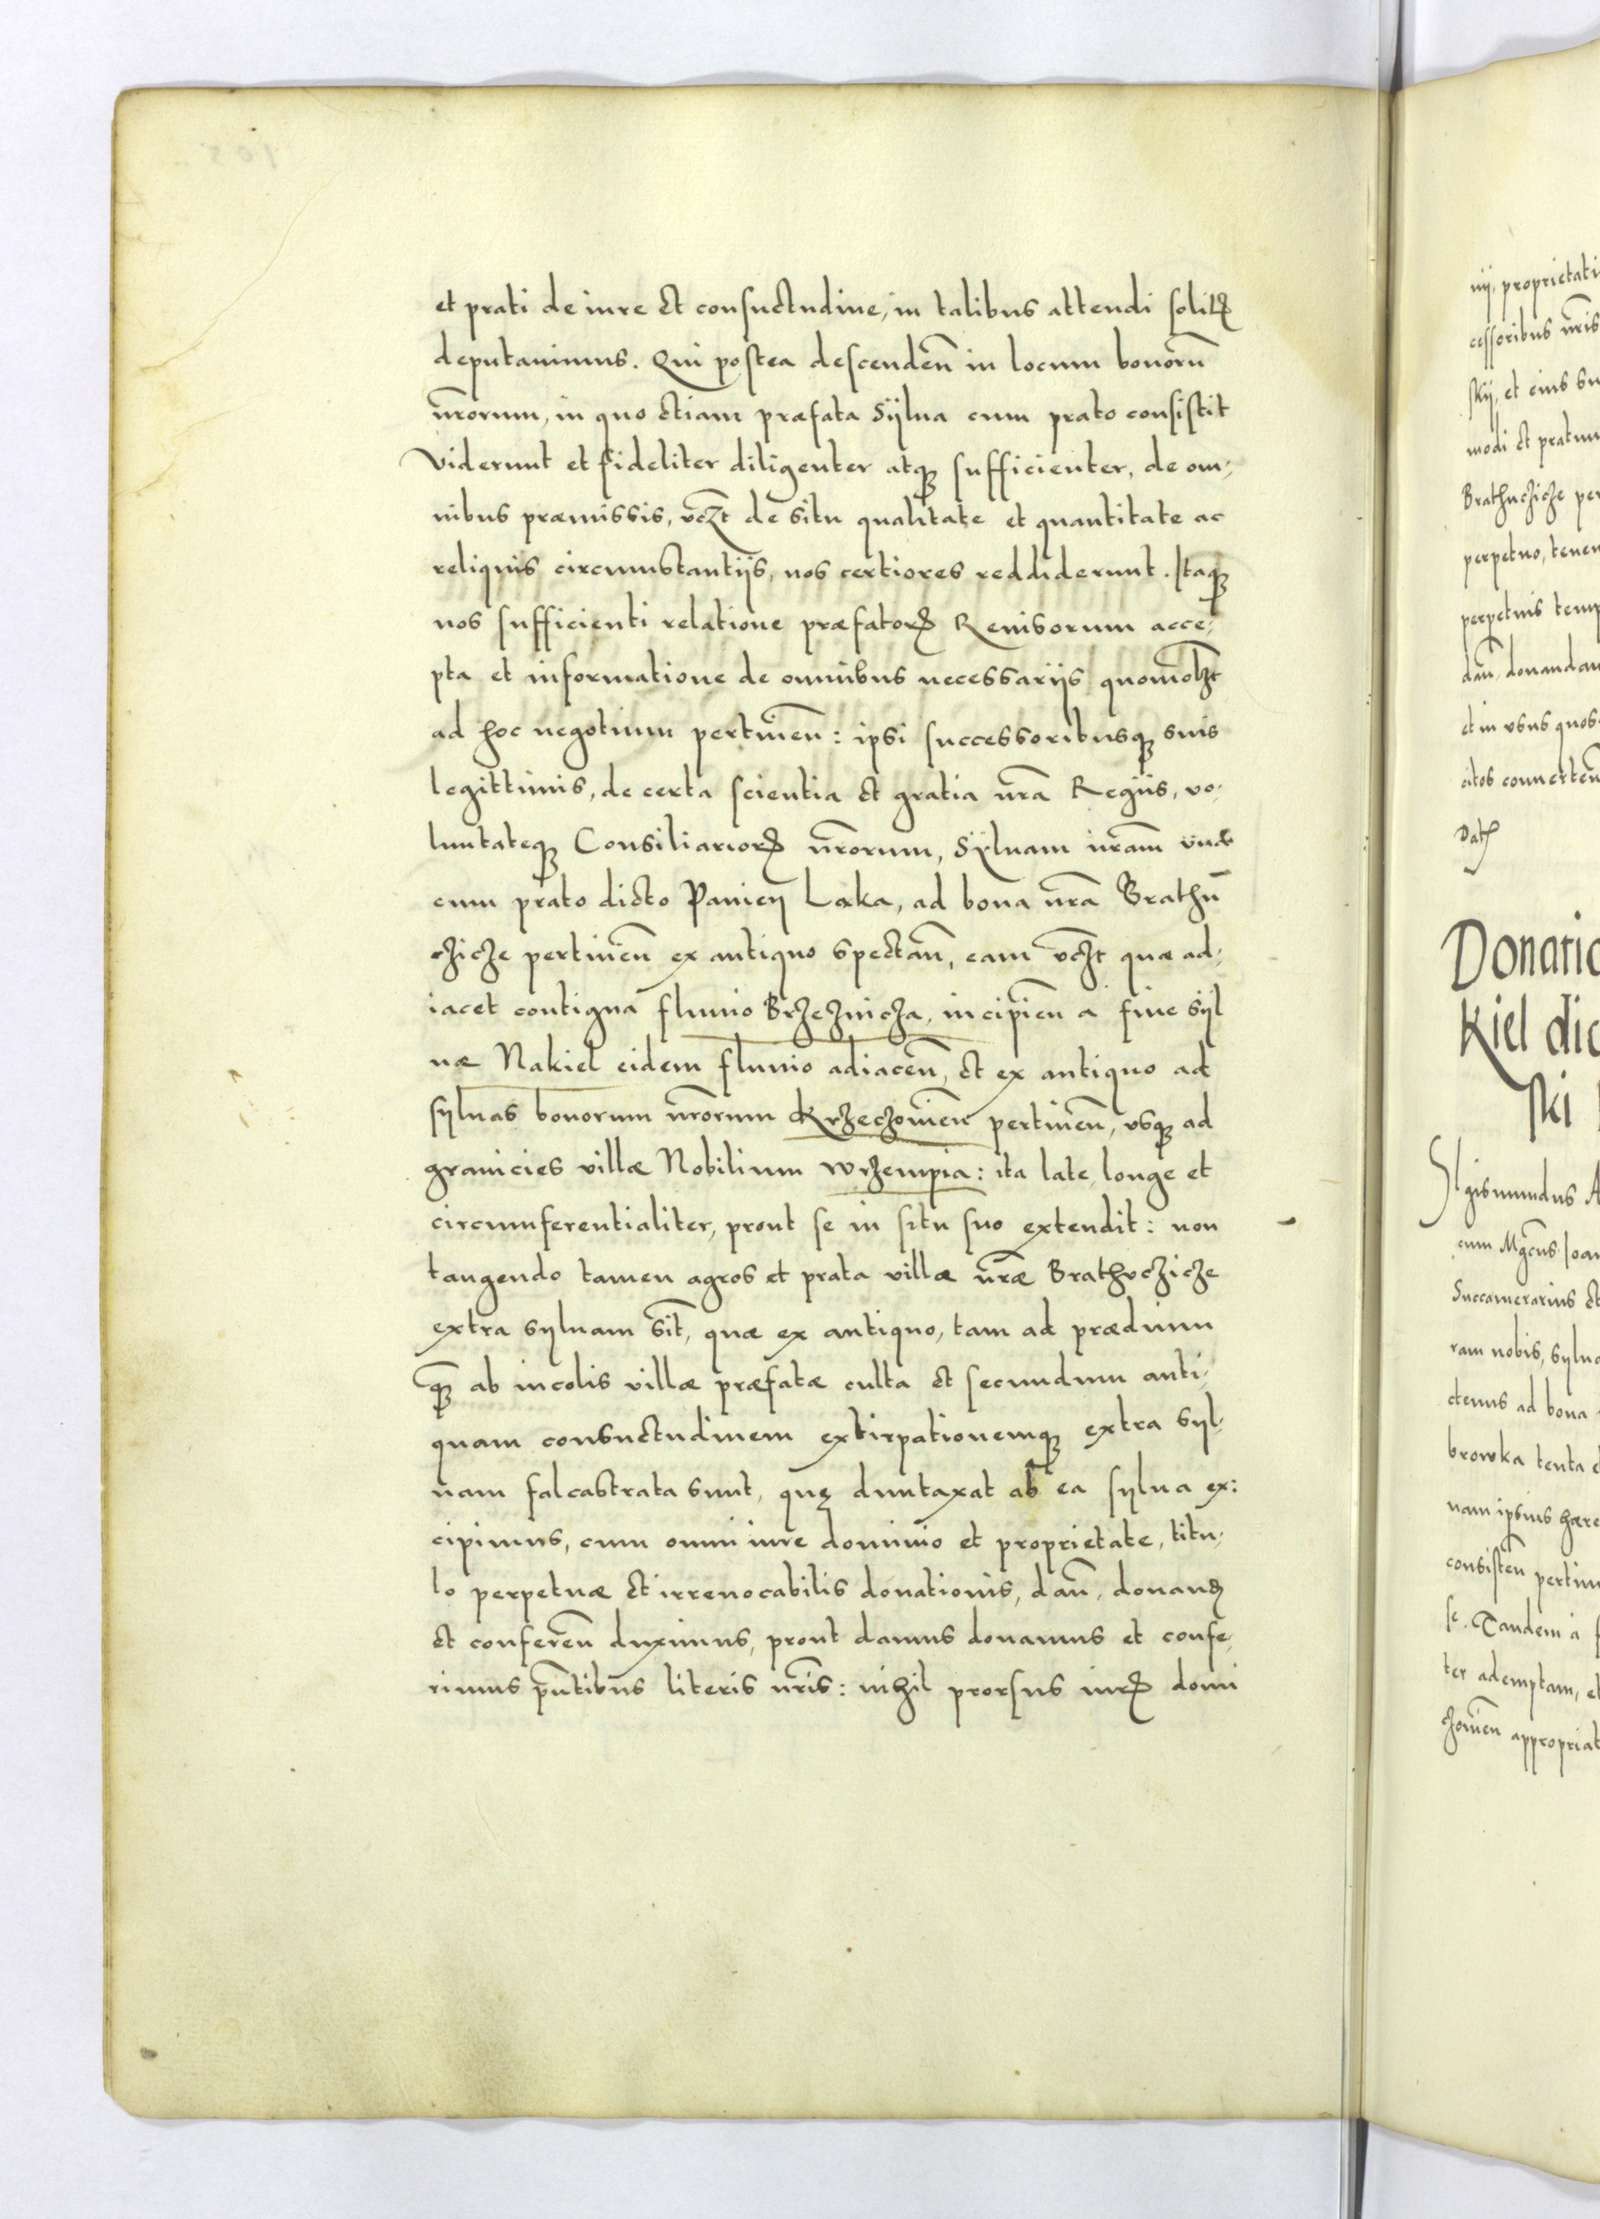 et prati de iure et consuetudine, in talibus attendi solitꝝ
deputauimus. Qui postea descendeñ in locum bonorũ
ñrorum, in quo etiam præfata Sÿlua cum prato consistit
Viderunt et fideliter diligenter atqꝫ sufficienter, de om-
nibus præmissis, vcꝫt de situ qualitate et quantitate ac
reliquis circumstantÿs, nos certiores reddiderunt. Itaqꝫ
nos sufficienti relatione præfatorꝝ Reuisorum acce-
pta et informatione de omnibus necessarÿs quomolꝫt
ad hoc negotium pertineñ: ipsi successoribusqꝫ suis
legittimis, de certa scientia et gratia ñra Regÿs, vo-
luntateqꝫ Consiliariorꝝ ñrorum, Sÿluam ñram vna
cum prato dicto Paniey Laka, ad bona ñra Brathu
czicze pertineñ ex antiquo spectañ, eam vcꝫt quæ ad-
iacet contigua fluuio Brzeznicza, incipieñ a fine sÿl
uæ Nakiel eidem fluuio adiaceñ, et ex antiquo ad
syluas bonorum ñrorum Krzeczowieñ pertineñ, vsqꝫ ad
granicies villæ Nobilium Wrzempia: ita late, longe et
circumferentialiter, prout se in situ suo extendit: non
tangendo tamen agros et prata villæ ñræ Brathvczicze
extra syluam sit, quæ ex antiquo, tam ad prædium
qꝫ ab incolis villæ præfatæ culta et secundum anti-
quam consuetudinem extirpationemqꝫ extra syl-
uam falcastrata sunt, quę duntaxat ab ea sylua ex:
cipimus, cum omni iure dominio et proprietate, titu-
lo perpetuæ et irreuocabilis donationis, dañ, donanꝝ
et confereñ duximus, prout damus donamus et confe-
rimus p̃ntibus literis ñris: nihil prorsus iurꝝ domi
nij, proprietati
cessoribus ñris
skij, et eius su
modi et pratum
Brathuczicze per
perpetuo, tenen
perpetuis temp
dañ, donandam
et in vsus quos
citos conuerteñ
Datꝝ
Donatio
kiel dic
ski
Sigismundus A
cum Mgcus Ioan
Succamerarius et
ram nobis, sylua
ctenus ad bona
browka tenta e
nam ipsius hære
consisteñ pertin
se. Tandem a
ter ademptam, et
czowieñ appropriat